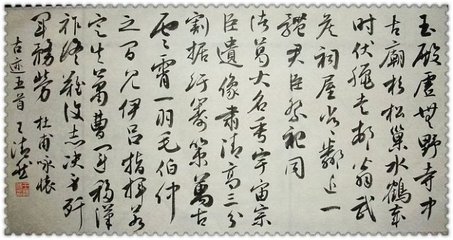 玉殿虚無野寺中
古廟杉松巢水鶴歲
時伏臘走邨翁武
侯祠屋常鄰近一
體君臣祭祀同
諸葛大名垂宇宙宗
臣遺像肅清高三分
割據紆籌策萬古
雲霄一羽毛伯仲
之間見伊呂指揮若
定失蕭曹運移漢
祚終難復志決身殲
軍務勞 杜甫詠懷
古迹五首